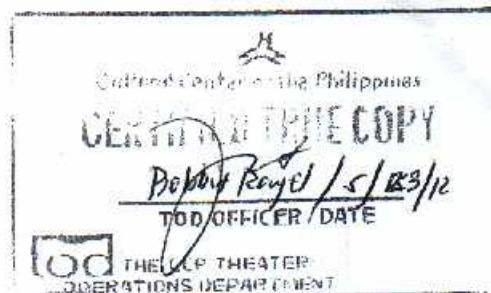 Cultural Center of the Philippines
CERTIFIED TRUE COPY
/5/
TOD OFFICER / DATE
tod THE CCP THEATER
OPERATIONS DEPARTMENT